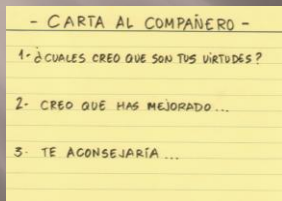 - CARTA AL COMPAÑERO -
1- ¿CUALES CREO QUE SON TUS VIRTUDES?
2- CREO QUE HAS MEJORADO...
3- TE ACONSEJARÍA...